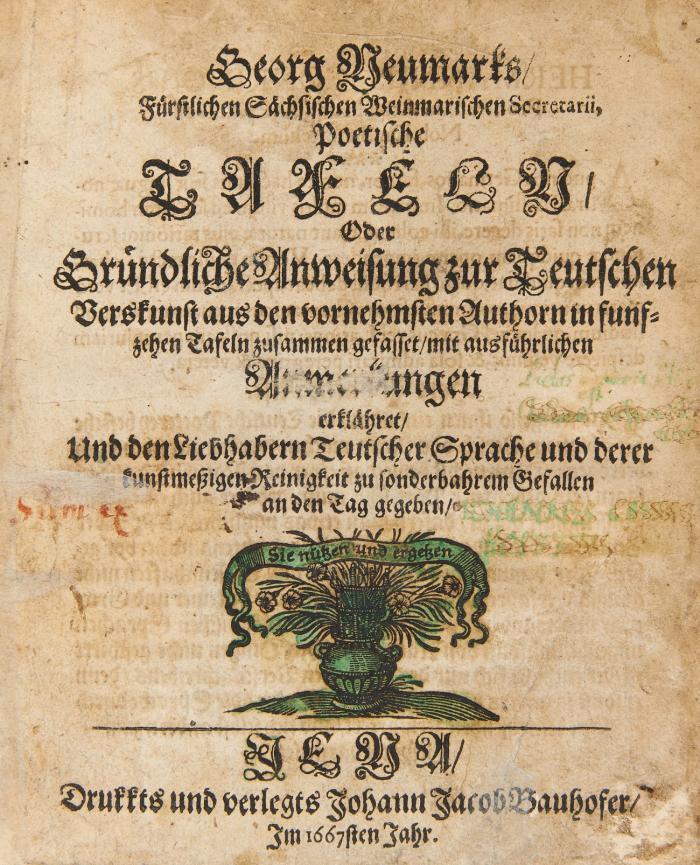 Georg Neumarks/
Fürstlichen Sächsischen Weinmarischen Secretarii,
Poetische
TAFELN/
Oder
Gründliche Anweisung zur Teutschen
Verskunst aus den vornehmsten Authorn in funf-
zehen Tafeln zusammen gefasset/mit ausführlichen
Anmerkungen
erklähret/
Und den Liebhabern Teutscher Sprache und derer
kunstmeßigen Reinigkeit zu sonderbahrem Gefallen
an den Tag gegeben/
Sie nützen und ergetzen
JENA/
Drukkts und verlegts Johann Jacob Bauhofer/
Im 1667sten Jahr.